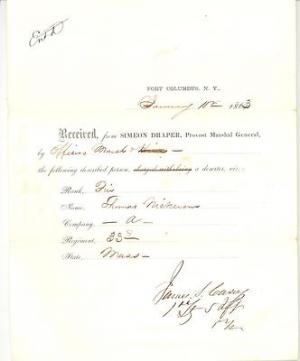 Ent'd
FORT COLUMBUS, N. Y.,
January 10th 1863
Received, from SIMEON DRAPER, Provost Marshal General,
by Officers
the following described person, charged with being a deserter, viz:
Rank,
Name, Thomas Nickerson
Company, — A —
Regiment, 33d
State, Mass —
James S. Casey